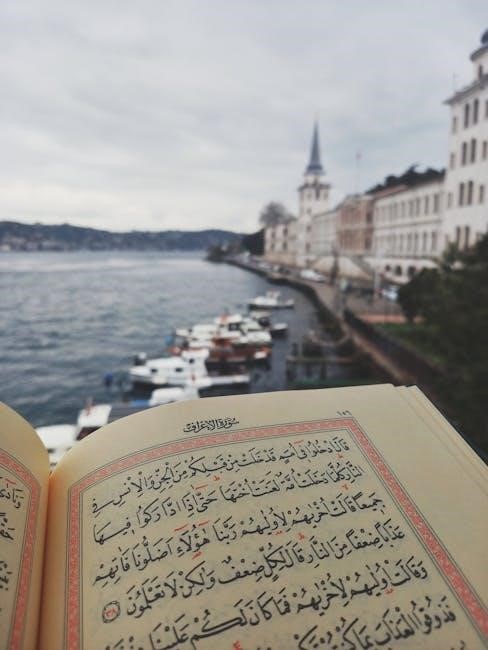 سُورَةُ الْاَعْرَافِ
قَالَ ادْخُلُوا فِى اُمَمٍ قَدْ خَلَتْ مِنْ قَبْلِكُمْ مِنَ الْجِنِّ وَالْاِنْسِ فِى
النَّارِ كُلَّمَا دَخَلَتْ اُمَّةٌ لَعَنَتْ اُخْتَهَا حَتّٰى اِذَا ادَّارَكُوا فِيهَا
جَمِيعًا قَالَتْ اُخْرٰيهُمْ لِاُولٰيهُمْ رَبَّنَا هٰٓؤُلَٓاءِ اَضَلُّونَا فَاٰتِهِمْ
عَذَابًا ضِعْفًا مِنَ النَّارِ قَالَ لِكُلٍّ ضِعْفٌ وَلٰكِنْ لَا تَعْلَمُونَ ٣٨
وَقَالَتْ اُولٰيهُمْ لِاُخْرٰيهُمْ فَمَا كَانَ لَكُمْ عَلَيْنَا
فَذُوقُوا الْعَذَابَ بِمَا كُنْتُمْ